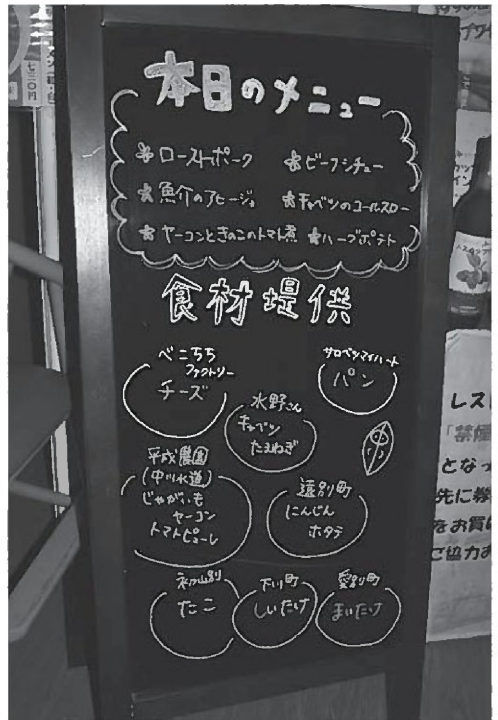 本日のメニュー
ローストポーク ビーフシチュー
魚介のアヒージョ キャベツのコールスロー
ヤーコンときのこのトマト煮 ハーブポテト
食材堤供
べこちち
ファクトリー
チーズ
サロベツマイハート
パン
水野さん
キャベツ
たまねぎ
平成農園
(中川水道)
じゃがいも
ヤーコン
トマトピューレ
遠別町
にんじん
ホタテ
初山別
たこ
下川町
しいたけ
愛別町
まいたけ
七三〇円
レス
「禁煙
となっ
先に券
をお買
ご協力お